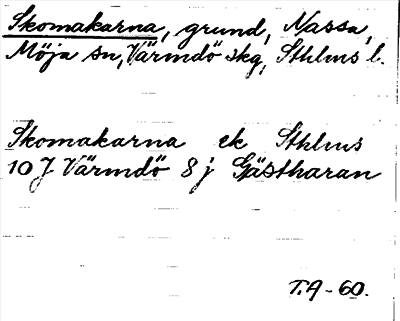 Skomakarna, grund, Nassa,
Möja sn, Värmdö skg, Sthlms l.
Skomakarna ek Sthlms
10 J Värmdö 8 j Gästharan
T.A-60.